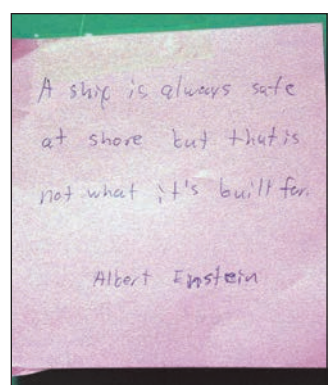 A ship is always safe
at shore but that is
not what it's built for.
Albert Einstein